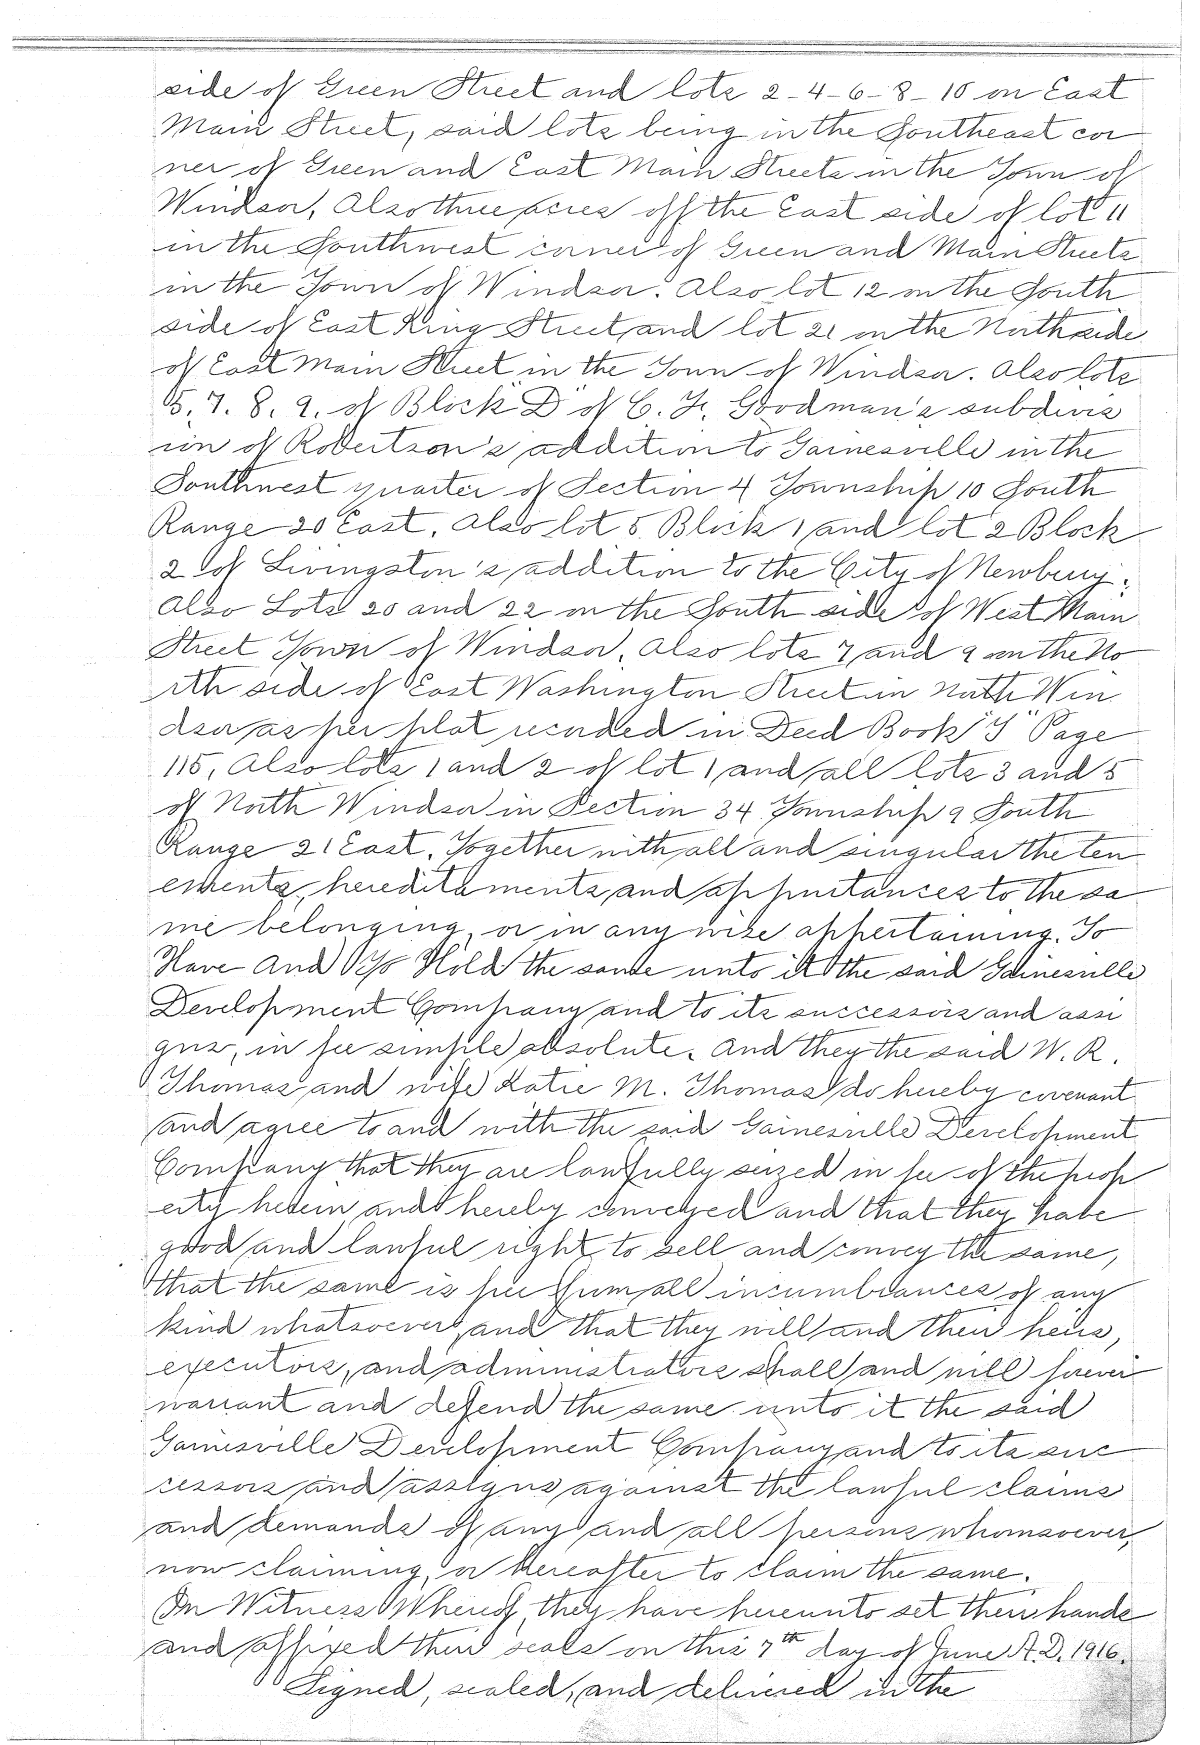 side of Green Street and lots 2-4-6-8-10 on East
Main Street, said lots being in the Southeast cor
ner of Green and East Main Streets in the Town of
Windsor, Also three acres off the East side of lot 11
in the Southwest corner of Green and Main Streets
in the Town of Windsor. Also lot 12 on the South
side of East King Street and lot 21 on the North side
of East Main Street in the Town of Windsor. Also lots
5, 7. 8. 9. of Block "D" of C. F. Goodman's subdivis
ion of Robertson's addition to Gainesville in the
Southwest quarter of Section 4 Township 10 South
Range 20 East. Also lot 5 Block 1 and lot 2 Block
2 of Livingston's addition to the City of Newberry.
Also Lots 20 and 22 on the South side of West Main
Street Town of Windsor. Also lots 7 and 9 on the No
rth side of East Washington Street in North Win
dsor as per plat recorded in Deed Book Page
115, Also lots 1 and 2 of lot 1 and all lots 3 and 5
of North Windsor in Section 34 Township 9 South
Range 21 East. Together with all and singular the ten
ements, hereditaments, and appurtances to the sa
me belonging, or in any wise appertaining. To
Have And To Hold the same unto it the said Gainesville
Development Company and to its successors and assi
gns, in fee simple absolute. And they the said W. R.
Thomas and wife Katie M. Thomas do hereby covenant
and agree to and with the said Gainesville Development
Company that they are lawfully seized in fee of the prop
erty herein and hereby conveyed and that they have
good and lawful right to sell and convey the same,
that the same is free from all incumbrances of any
kind whatsoever, and that they will and their heirs,
executors, and administrators shall and will forever
warrant and defend the same unto it the said
Gainesville Development Company and to its suc
cessors and assigns against the lawful claims
and demands of any and all persons whomsoever,
now claiming, or hereafter to claim the same.
In Witness Whereof, they have hereunto set their hands
and affixed their seals on this 7th day of June A.D. 1916.
Signed, sealed, and delivered in the